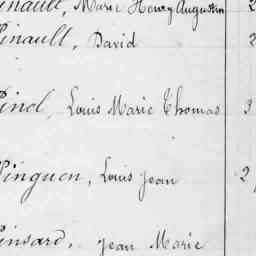 inault, Marie Henry Augustin 2
inault, David 2
inel, Louis Marie Thomas 3
inguen, Louis Jean 2
insard, Jean Marie